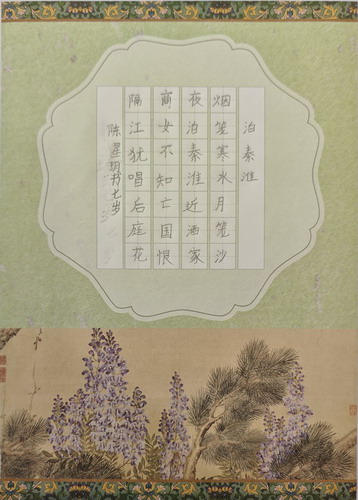 泊秦淮
烟笼寒水月笼沙
夜泊秦淮近酒家
商女不知亡国恨
隔江犹唱后庭花
陈星玥书七岁